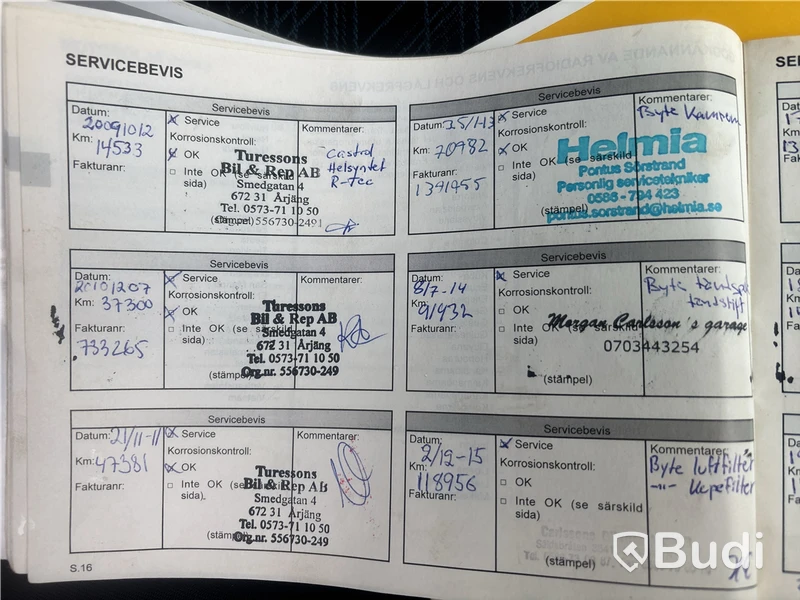 SERVICEBEVIS
Servicebevis
Datum: 20091012
Km: 14533
Fakturanr:
Service
Korrosionskontroll:
OK
Inte OK (se särskild
sida)
(stämpel)
Turessons
Bil & Rep AB
Smedgatan 4
672 31 Årjäng
Tel. 0573-71 10 50
556730-2491
Kommentarer:
Castrol
Helsyntet
R-tec
Servicebevis
Datum:
20101207
Km: 37300
Fakturanr:
733265
Service
Korrosionskontroll:
OK
Inte OK (se särskild
sida)
(stämpel)
Turessons
Bil & Rep AB
Smedgatan 4
672 31 Årjäng
Tel. 0573-71 10 50
Org.nr. 556730-249
Kommentarer:
Servicebevis
Datum: 21/11-11
Km: 47381
Fakturanr:
Service
Korrosionskontroll:
OK
Inte OK (se särskild
sida)
(stämpel)
Turessons
Bil & Rep AB
Smedgatan 4
672 31 Årjäng
Tel. 0573-71 10 50
Org.nr. 556730-249
Kommentarer:
S.16
Servicebevis
Datum:
Km: 70982
Fakturanr:
1391455
Service
Korrosionskontroll:
OK
Inte OK (se särskild
sida)
(stämpel)
Helmia
Pontus Sörstrand
Personlig servicetekniker
0586 - 794 423
pontus.sorstrand@helmia.se
Kommentarer:
Byte Kamrem
Servicebevis
Datum:
8/7-14
Km:
91432
Fakturanr:
Service
Korrosionskontroll:
OK
Inte OK (se särskild
sida)
(stämpel)
Morgan Carlsson's garage
0703443254
Kommentarer:
Byte
tändstift
Servicebevis
Datum:
2/12-15
Km:
118956
Fakturanr:
Service
Korrosionskontroll:
OK
Inte OK (se särskild
sida)
(stämpel)
Kommentarer:
Byte luftfilter
-"- kupefilter
SE
Budi